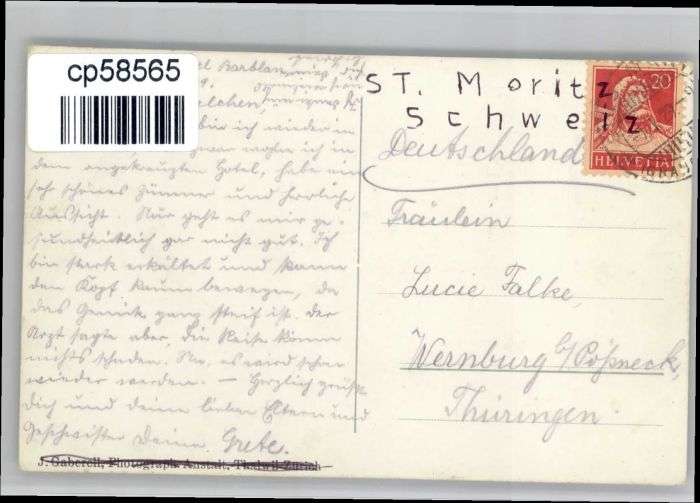 cp58565
Barblan,
bin ich wieder in
dem angekreuzten Hotel, habe ein
sehr schönes Zimmer und herrliche
Aussicht. Nur geht es mir ge-
sundheitlich gar nicht gut. Ich
bin stark erkältet und kann
den Kopf kaum bewegen, da
das Genick ganz steif ist. Der
Arzt sagte aber, die Reise könne
nichts schaden. Na, es wird schon
wieder werden. — Herzlich grüßt
Dich und deine lieben Eltern und
Geschwister Deine Grete.
J. Gaberell, Photograph. Anstalt, Thalwil-Zürich
ST. Moritz
Schweiz
20
HELVETIA
Deutschland
Fräulein
Lucie Falke,
Wernburg b/Pößneck,
Thüringen.